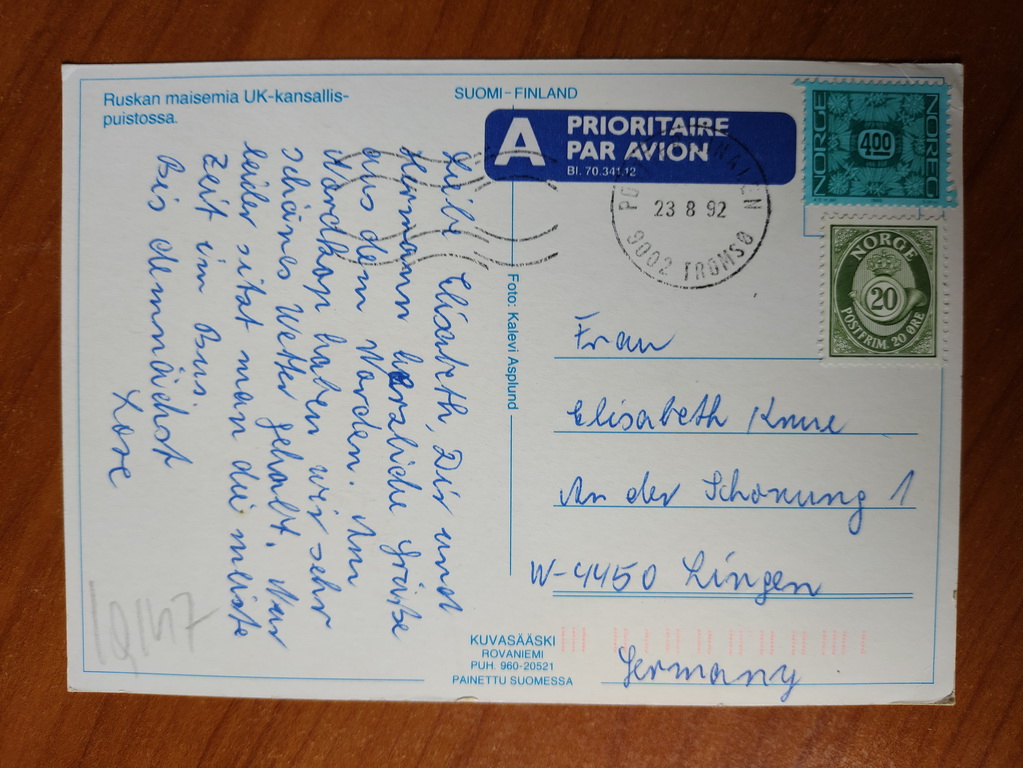 Ruskan maisemia UK-kansallis-
puistossa.
SUOMI – FINLAND
A PRIORITAIRE
PAR AVION
Bl. 70.341.12
23 8 92
9002 TROMSØ
NORGE
400
NOREG
NORGE
20
POSTFRIM. 20 ØRE
Liebe Elisabeth, Dir und
Hermann herzliche Grüße
aus dem Norden. Am
Nordkap haben wir sehr
schönes Wetter gehabt. Nur
leider sitzt man die meiste
Zeit im Bus.
Bis demnächst
Lore
Foto: Kalevi Asplund
Frau
Elisabeth
An der Schonung 1
W-4450 Lingen
Germany
KUVASÄÄSKI
ROVANIEMI
PUH. 960-20521
PAINETTU SUOMESSA